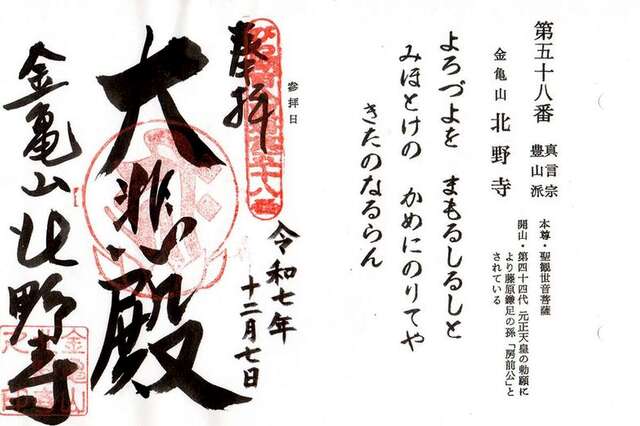 第五十八番
真言宗
豊山派
金亀山 北野寺
本尊・聖観世音菩薩
開山・第四十四代 元正天皇の勅願に
より藤原鎌足の孫「房前公」と
されている
よろづよを まもるしるしと
みほとけの かめにのりてや
きたのなるらん
参拝日
奉拝
令和七年
十二月七日
大悲殿
金亀山北野寺